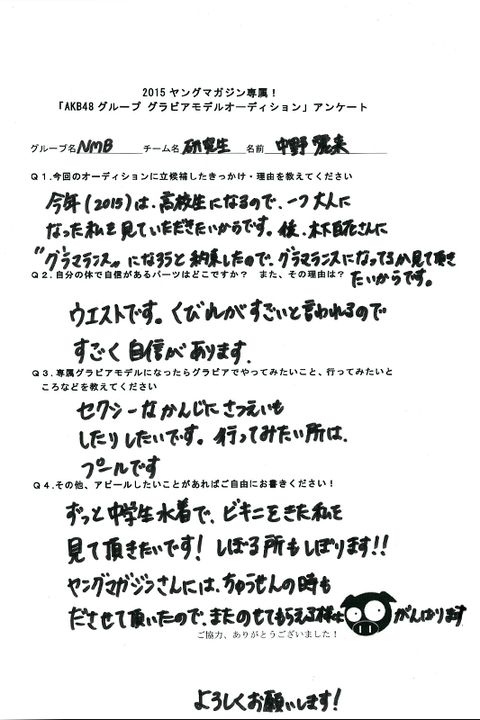 2015 ヤングマガジン専属！
「AKB48グループ グラビアモデルオーディション」アンケート
グループ名 NMB チーム名 研究生 名前 中野麗来
Q1.今回のオーディションに立候補したきっかけ・理由を教えてください
今年(2015)は、高校生になるので、一つ大人に
なった私を見ていただきたいからです。後、木下百花さんに
"グラマランス"になろうと約束したので、グラマランスになってるか見て頂き
たいからです。
Q2.自分の体で自信があるパーツはどこですか？ また、その理由は？
ウエストです。くびれがすごいと言われるので
すごく自信があります.
Q3.専属グラビアモデルになったらグラビアでやってみたいこと、行ってみたいと
ころなどを教えてください
セクシーなかんじにさつえいも
したりしたいです。行ってみたい所は、
プールです
Q4.その他、アピールしたいことがあればご自由にお書きください！
ずっと中学生水着で、ビキニをきた私を
見て頂きたいです！しぼる所もしぼります!!
ヤングマガジンさんには、ちゅうせんの時も
ださせて頂いたので、またのせてもらえる様に がんばります
ご協力、ありがとうございました！
よろしくお願いします！